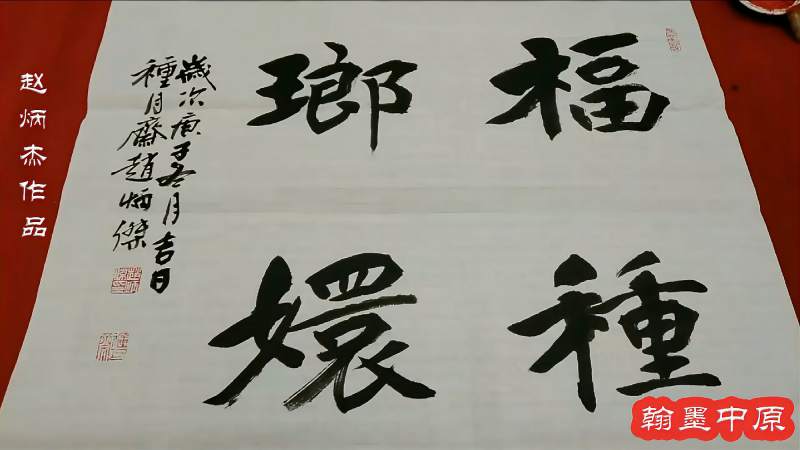 福種
瑯嬛
歲次庚子冬月吉日
種月齋趙炳傑
赵炳杰作品
翰墨中原